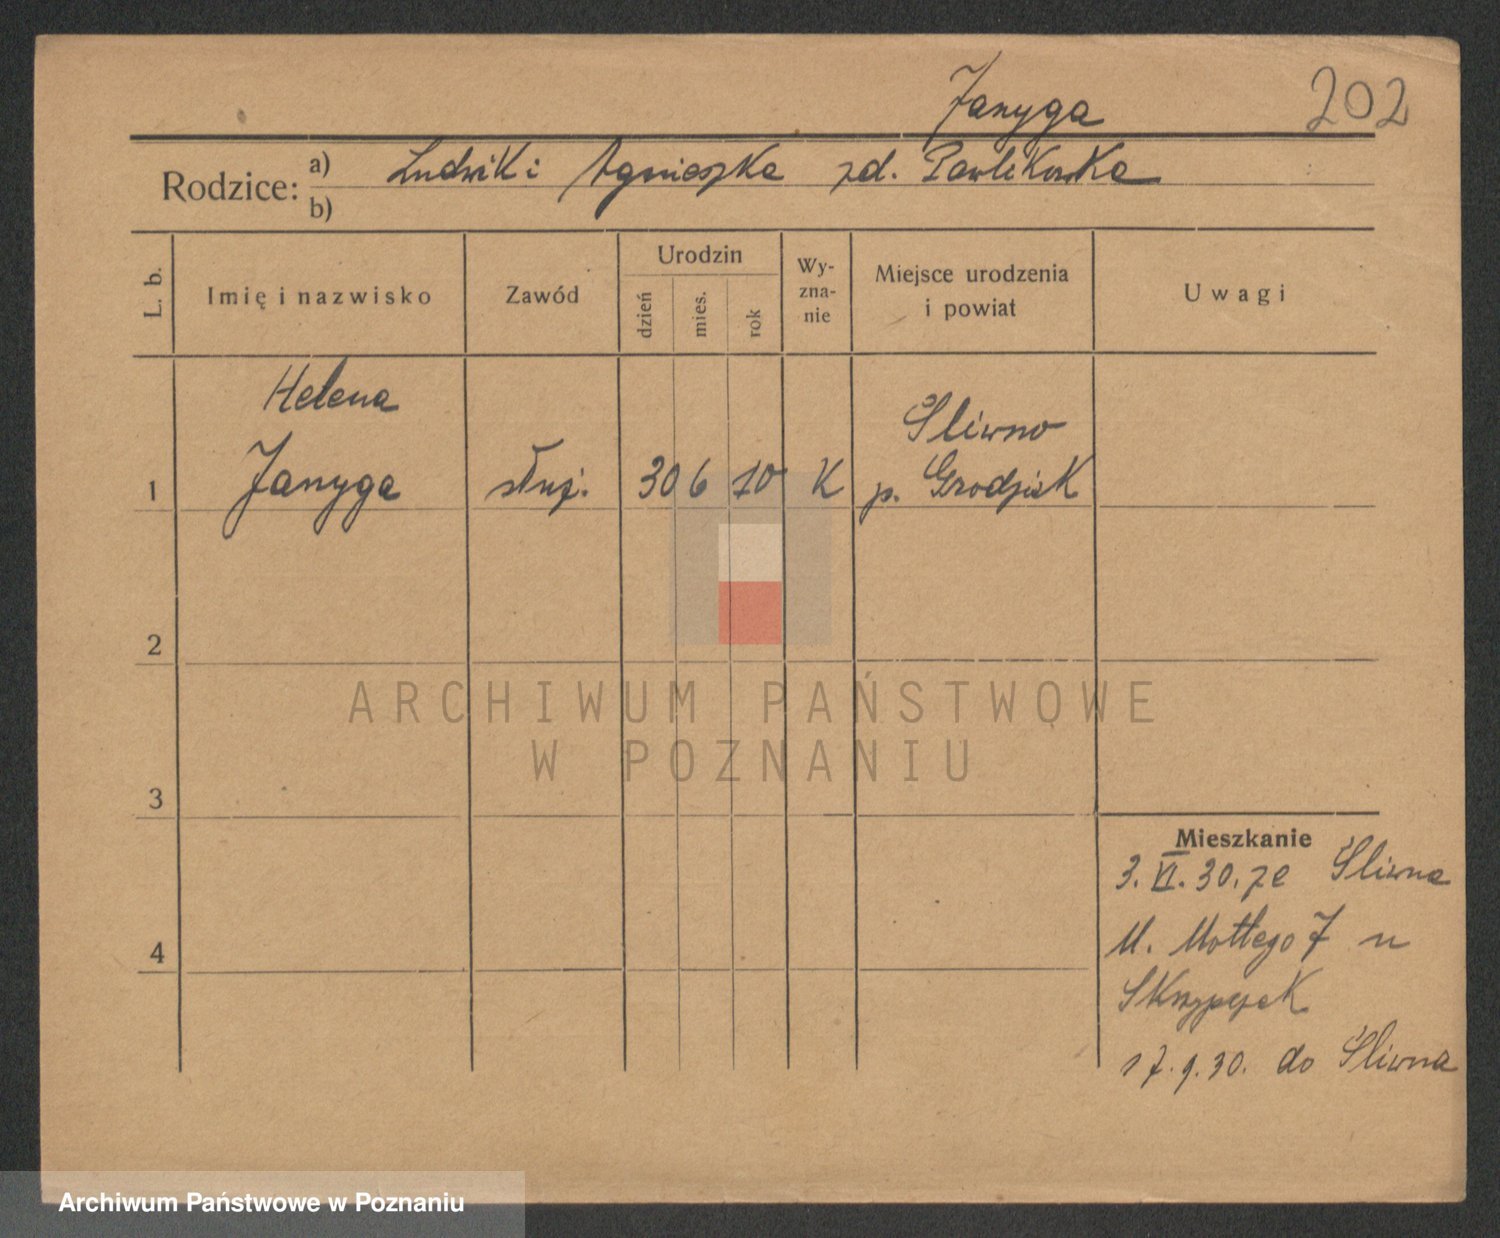 Janyga 202
Rodzice: a) Ludwik i Agnieszka zd. Pawlikowska
b)
L. b. Imię i nazwisko Zawód Urodzin dzień mies. rok Wy-zna-nie Miejsce urodzenia i powiat Uwagi
Helena
Śliwno
1 Janyga służ. 30 6 10 K p. Grodzisk
2
ARCHIWUM PAŃSTWOWE
W POZNANIU
3
Mieszkanie
3. VI. 30. ze Śliwna
4 M. Mottego 7 u
Skrzypczak
17. 9. 30. do Śliwna
Archiwum Państwowe w Poznaniu